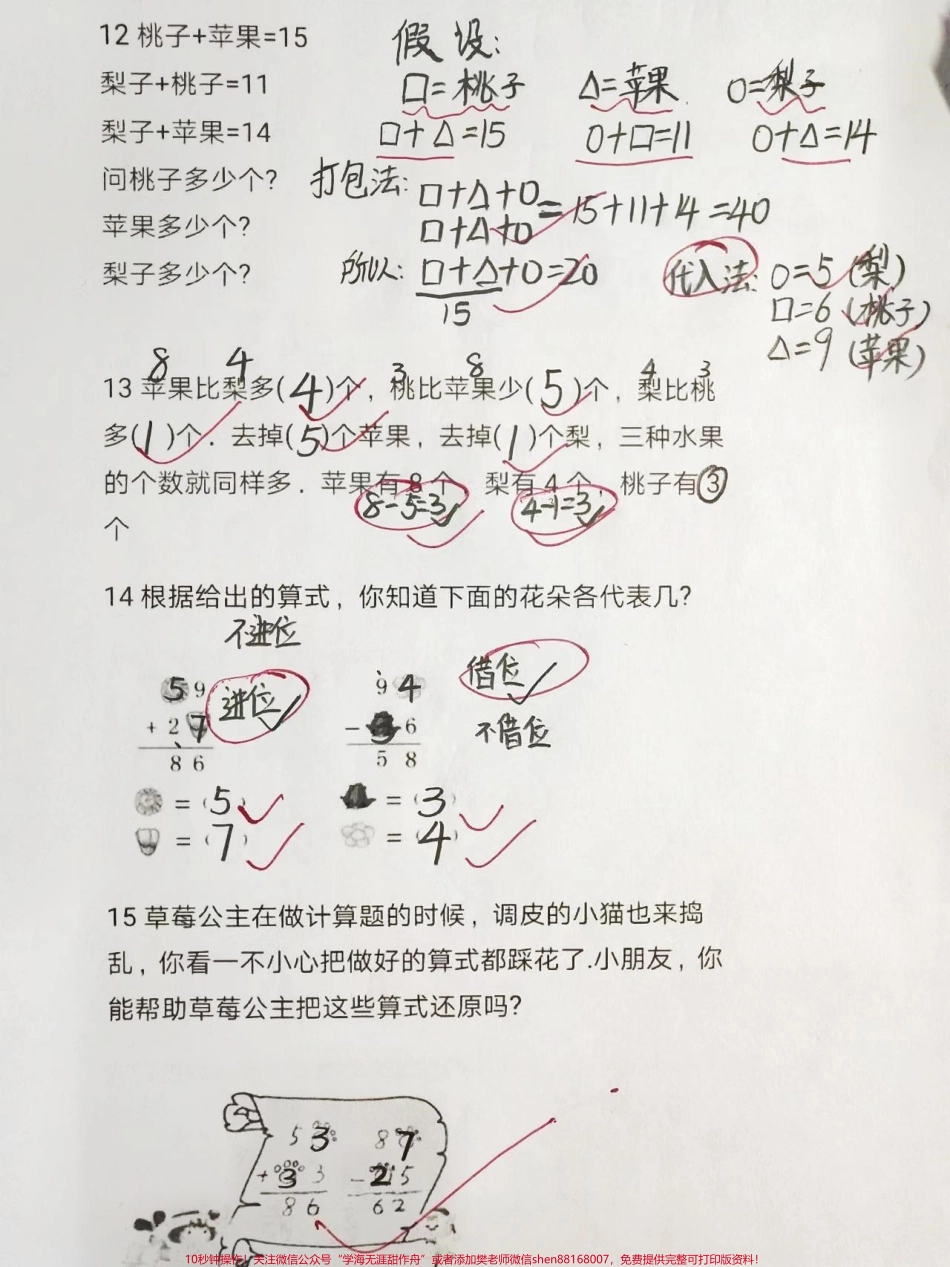 12 桃子+苹果=15 假设:
梨子+桃子=11 □=桃子 △=苹果 O=梨子
梨子+苹果=14 □+△=15 O+□=11 O+△=14
问桃子多少个? 打包法: □+△+O
苹果多少个? □+△+O =15+11+14=40
梨子多少个? 所以: □+△+O=20 代入法: O=5(梨)
15 □=6(桃子)
△=9(苹果)
8 4 3 8 4 3
13 苹果比梨多(4)个，桃比苹果少(5)个，梨比桃
多(1)个．去掉(5)个苹果，去掉(1)个梨，三种水果
的个数就同样多．苹果有 8 个，梨有 4 个，桃子有③
个 8-5=3 4-1=3
14 根据给出的算式，你知道下面的花朵各代表几?
不进位
5 9 进位 9 4 借位
+ 2 7 - 3 6 不借位
8 6 5 8
=(5) =(3)
=(7) =(4)
15 草莓公主在做计算题的时候，调皮的小猫也来捣
乱，你看一不小心把做好的算式都踩花了.小朋友，你
能帮助草莓公主把这些算式还原吗?
5 3 8 7
+ 3 3 - 2 5
8 6 6 2
10秒钟操作！关注微信公众号“学海无涯甜作舟”或者添加樊老师微信shen88168007，免费提供完整可打印版资料！